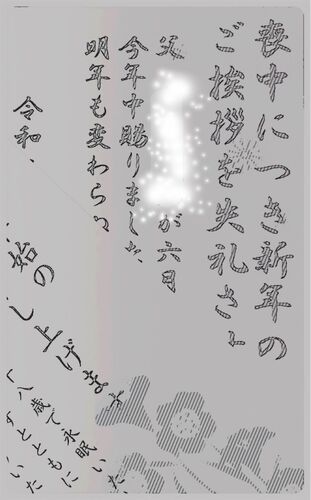 喪中につき新年の
ご挨拶を失礼さ
父 が六月
今年中賜りました
明年も変わらぬ
令和
始の
し上げます
八歳で永眠いた
すとともに